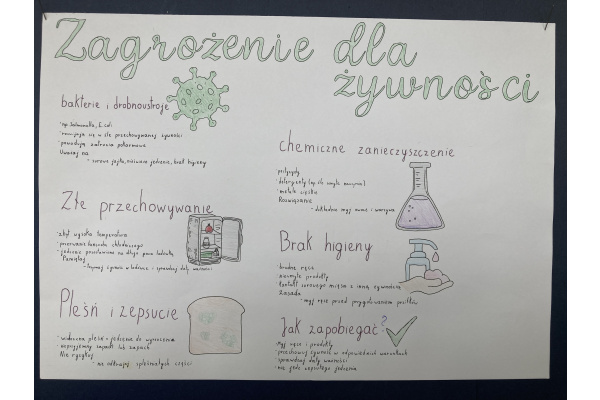 Zagrożenie dla
żywności
bakterie i drobnoustroje
• np. Salmonella, E. coli
• rozwijają się w źle przechowywanej żywności
• powodują zatrucia pokarmowe
Uważaj na
- surowe jajka, nieświeże jedzenie, brak higieny
Złe przechowywanie
• zbyt wysoka temperatura
• przerwanie łańcucha chłodniczego
• jedzenie pozostawione na długo poza lodówką
Pamiętaj
- trzymaj żywność w lodówce i sprawdzaj daty ważności
Pleśń i zepsucie
• widoczna pleśń = jedzenie do wyrzucenia
• nieprzyjemny zapach lub
Nie ryzykuj
- nie odkrawaj spleśniałych części
chemiczne zanieczyszczenie
• pestycydy
• detergenty (np. źle umyte naczynia)
• metale ciężkie
Rozwiązanie
- dokładnie myj owoce i warzywa
Brak higieny
• brudne ręce
• nieumyte produkty
• kontakt surowego mięsa z inną żywnością
Zasada
- myj ręce przed przygotowaniem posiłków
Jak zapobiegać?
• myj ręce i produkty
• przechowuj żywność w odpowiednich warunkach
• sprawdzaj daty ważności
• nie jedz zepsutego jedzenia